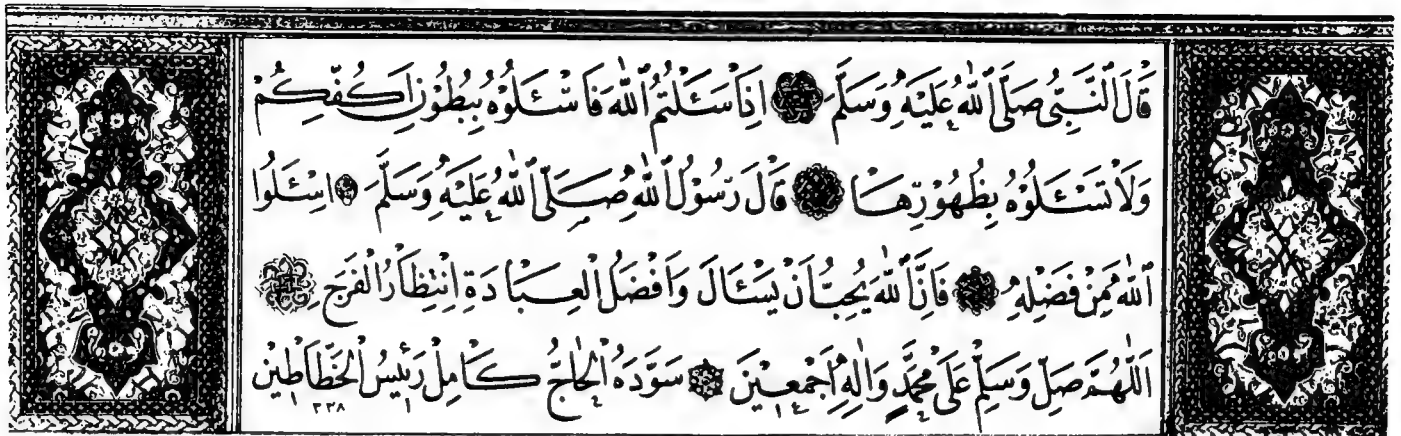 قَالَ ٱلنَّبِىُّ صَلَّى ٱللّٰهُ عَلَيْهِ وَسَلَّمَ اِذَا سَئَلْتُمُ ٱللّٰهَ فَاسْئَلُوْهُ بِبُطُوْنِ اَكُفِّكُمْ
وَلَا تَسْئَلُوْهُ بِظُهُوْرِهَا قَالَ رَسُوْلُ ٱللّٰهِ صَلَّى ٱللّٰهُ عَلَيْهِ وَسَلَّمَ اسْئَلُوا
ٱللّٰهَ مِنْ فَضْلِهِ فَاِنَّ ٱللّٰهَ يُحِبُّ اَنْ يُسْئَالَ وَاَفْضَلُ الْعِبَادَةِ اِنْتِظَارُ الْفَرَجِ
اَللّٰهُمَّ صَلِّ وَسَلِّمْ عَلٰى مُحَمَّدٍ وَاٰلِهِ اَجْمَعِيْنَ سَوَّدَهُ الْحَاجُّ كَامِلْ رَئِيْسُ الْخَطَّاطِيْنْ